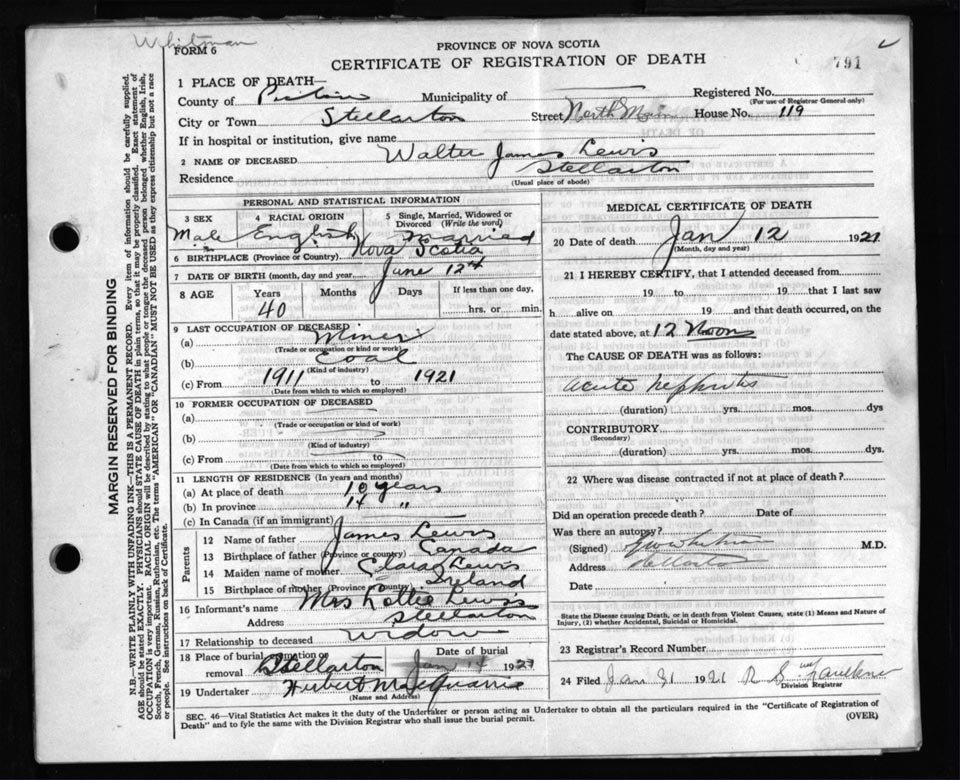 Whitman
FORM 6
PROVINCE OF NOVA SCOTIA
CERTIFICATE OF REGISTRATION OF DEATH
791
1 PLACE OF DEATH—
County of Pictou Municipality of Registered No.
(For use of Registrar General only)
City or Town Stellarton Street North Main House No. 119
If in hospital or institution, give name
2 NAME OF DECEASED Walter James Lewis
Residence Stellarton
(Usual place of abode)
PERSONAL AND STATISTICAL INFORMATION
3 SEX 4 RACIAL ORIGIN 5 Single, Married, Widowed or Divorced (Write the word)
Male English Married
6 BIRTHPLACE (Province or Country) Nova Scotia
7 DATE OF BIRTH (month, day and year) June 12th
8 AGE Years Months Days If less than one day,
40 hrs. or min.
9 LAST OCCUPATION OF DECEASED
(a) Miner
(Trade or occupation or kind or work)
(b) Coal
(Kind of industry)
(c) From 1911 to 1921
(Date from which to which so employed)
10 FORMER OCCUPATION OF DECEASED
(a)
(Trade or occupation or kind of work)
(b)
(Kind of industry)
(c) From to
(Date from which to which so employed)
11 LENGTH OF RESIDENCE (In years and months)
(a) At place of death 10 years
(b) In province 14 "
(c) In Canada (if an immigrant)
Parents
12 Name of father James Lewis
13 Birthplace of father (Province or country) Canada
14 Maiden name of mother Clara Lewis
15 Birthplace of mother (Province or Country) Ireland
16 Informant's name Mrs Lottie Lewis
Address Stellarton
17 Relationship to deceased Widow
18 Place of burial, cremation or removal Stellarton Date of burial Jan 14 1921
19 Undertaker Hubert MacQuarrie
(Name and Address)
MEDICAL CERTIFICATE OF DEATH
20 Date of death Jan 12 1921
(Month, day and year)
21 I HEREBY CERTIFY, that I attended deceased from
19 to 19 that I last saw
h alive on 19 and that death occurred, on the
date stated above, at 12 Noon
The CAUSE OF DEATH was as follows:
acute nephritis
(duration) yrs. mos. dys
CONTRIBUTORY
(Secondary)
(duration) yrs. mos. dys.
22 Where was disease contracted if not at place of death?
Did an operation precede death? Date of
Was there an autopsy?
(Signed) Whitman M.D.
Address Stellarton
Date
State the Disease causing Death, or in death from Violent Causes, state (1) Means and Nature of Injury, (2) whether Accidental, Suicidal or Homicidal.
23 Registrar's Record Number
24 Filed Jan 31 1921 R S
Division Registrar
SEC. 46—Vital Statistics Act makes it the duty of the Undertaker or person acting as Undertaker to obtain all the particulars required in the "Certificate of Registration of
Death" and to fyle the same with the Division Registrar who shall issue the burial permit.
(OVER)
MARGIN RESERVED FOR BINDING
N.B.—WRITE PLAINLY WITH UNFADING INK—THIS IS A PERMANENT RECORD. Every item of information should be carefully supplied.
AGE should be stated EXACTLY. PHYSICIANS should STATE CAUSE OF DEATH in plain terms, so that it may be properly classified. Exact statement of
OCCUPATION is very important. RACIAL ORIGIN will be described by stating to what people or tongue the deceased person belonged whether English, Irish,
Scotch, French, German, Russian, Ruthenian, etc. The terms "AMERICAN" OR "CANADIAN" MUST NOT BE USED as they express citizenship but not a race
or people. See instructions on back of Certificate.